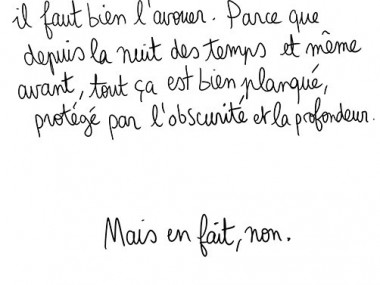 il faut bien l'avouer. Parce que
depuis la nuit des temps et même
avant, tout ça est bien planqué,
protégé par l'obscurité et la profondeur.
Mais en fait, non.